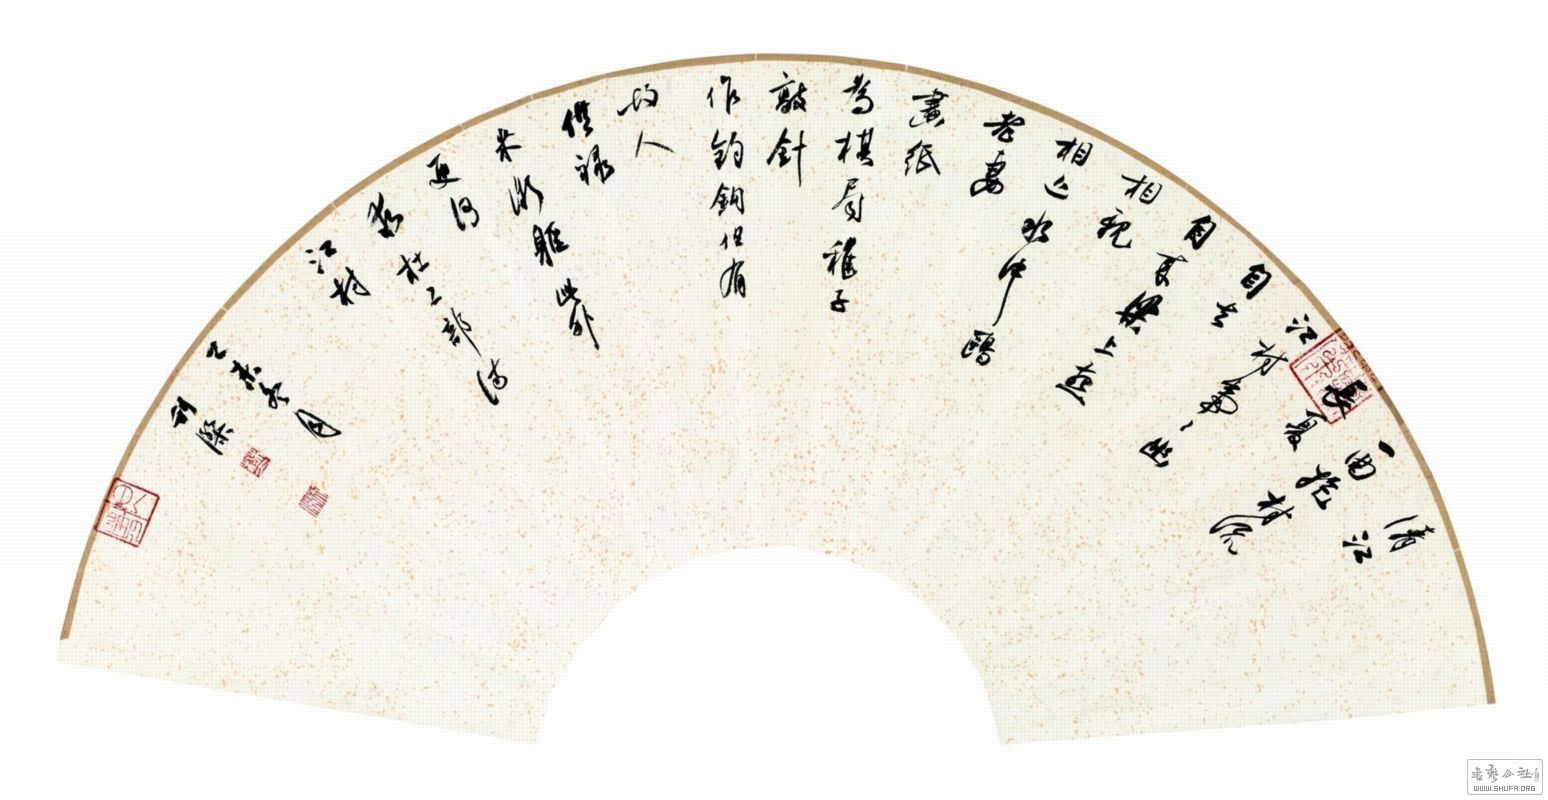 清江
一曲抱村流
長夏
江村事々幽
自去
自来梁上燕
相親
相近水中鷗
老妻
畫紙
為棋局稚子
敲針
作釣鉤但有
故人
供禄
米微軀此外
更何
求杜工部诗
江村
乙未月
刘
书艺公社
WWW.SHUFA.ORG